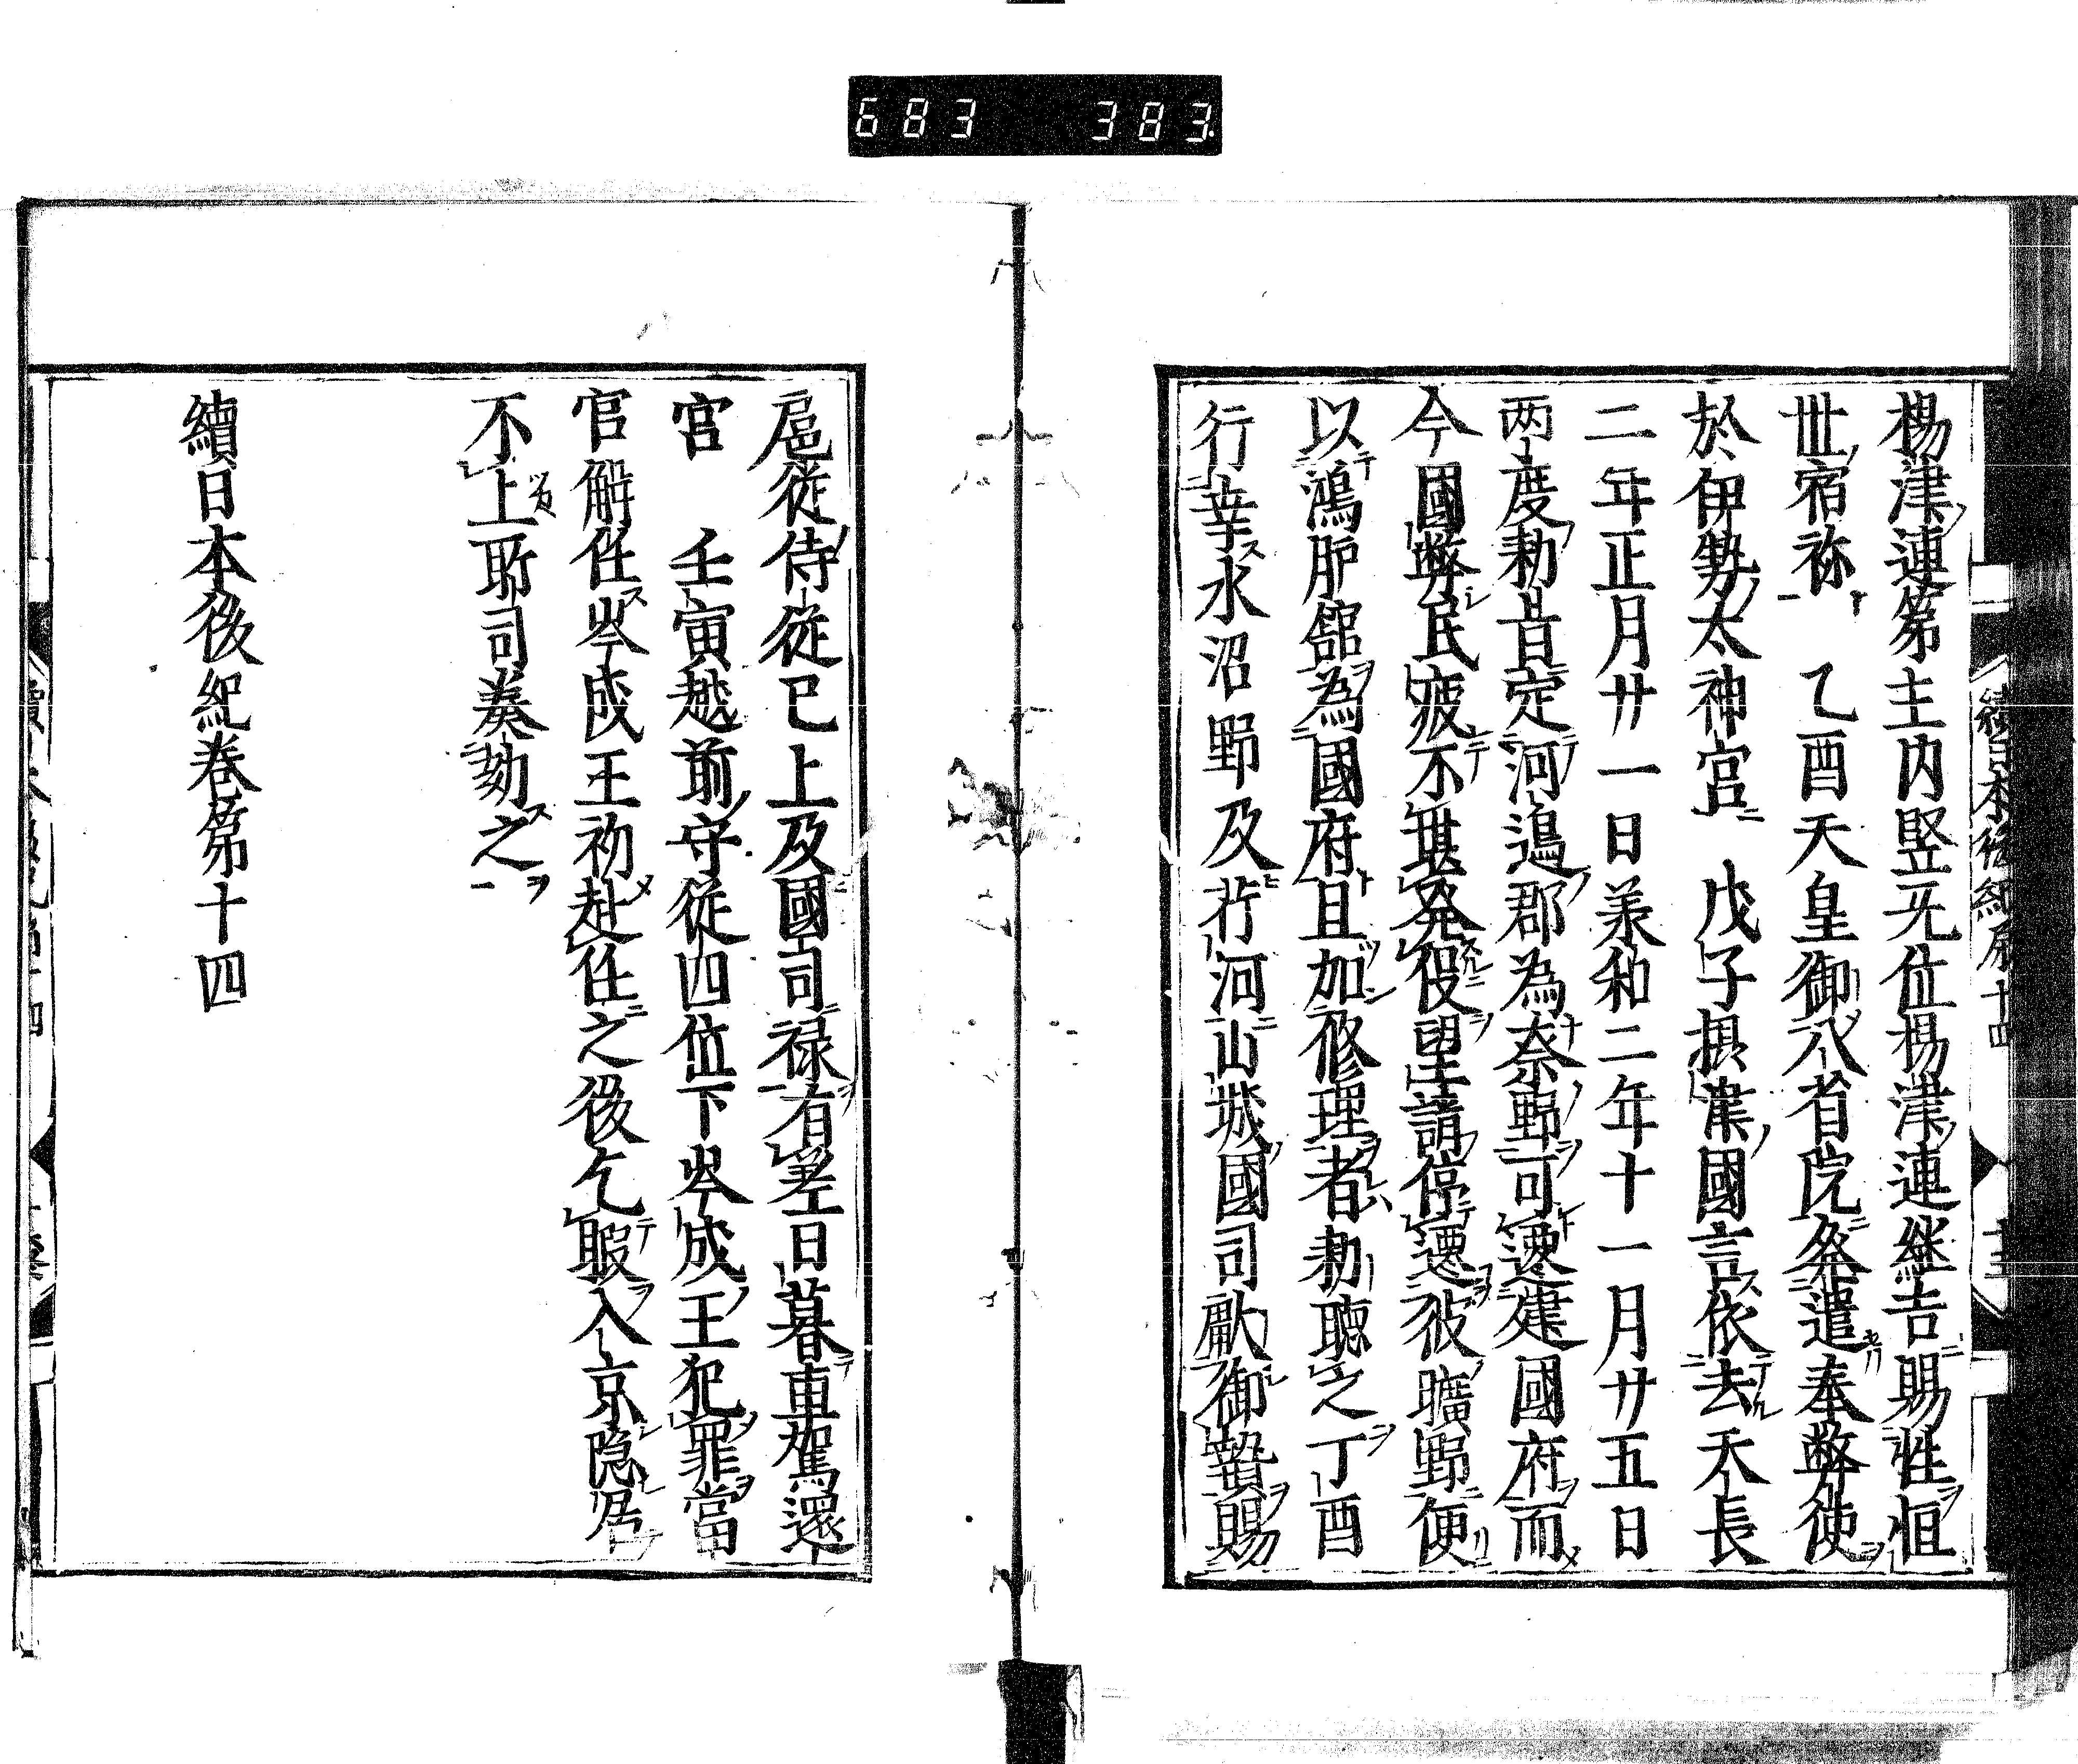 683 383
楊津連第主内竪无位楊津連継吉賜姓恒
世宿祢　乙酉天皇御八省院発遣奉弊使
於伊勢太神宮　戊子摂津國言依去天長
二年正月廿一日羕和二年十一月廿五日
両度勅旨定河邉郡為奈野可遷建國府而
今國弊民疲不堪発役望請停遷彼曠野便
以鴻臚舘為國府且加修理者勅聴之丁酉
行幸水沼野及芹河山城國司献御贄賜
扈從侍從已上及國司禄有差日暮車駕還
宮　壬寅越前守従四位下岑成王犯罪當
官解任岑成王初赴任之後乞暇入京隠居
不上耶司奏劾之
續日本後紀巻第十四